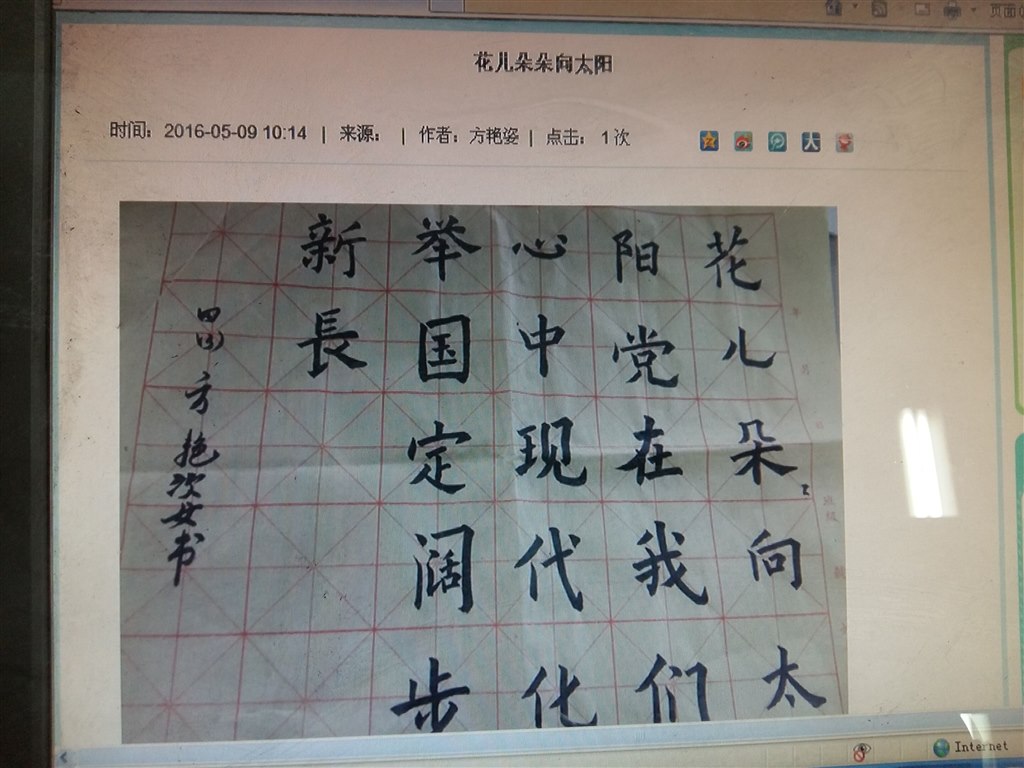 页面
花儿朵朵向太阳
时间： 2016-05-09 10:14 | 来源： | 作者：方艳姿 | 点击： 1次
花儿朵〻向太
阳党在我们
心中现代化
举国定阔步
新長
方艳姿书
Internet